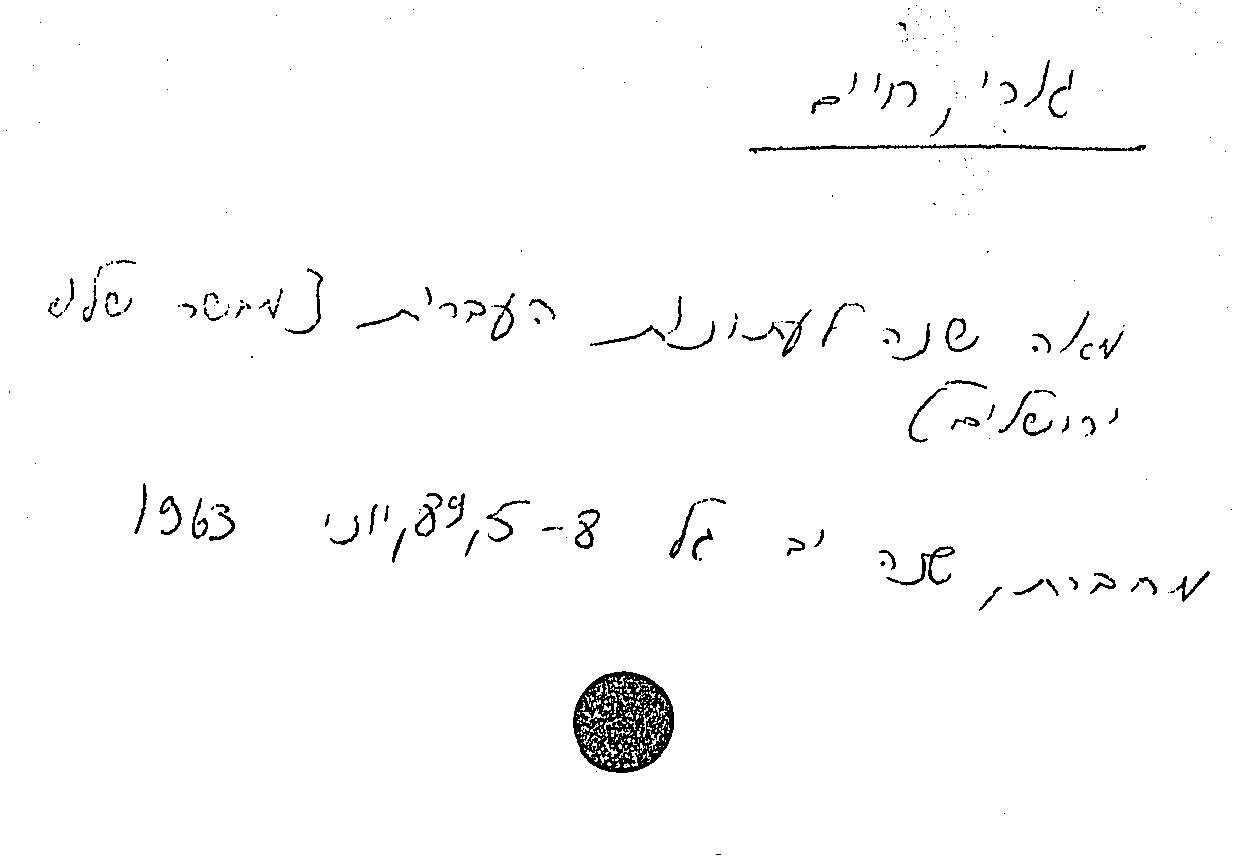 גורי, חיים
מאה שנה לעתונות העברית [מבשר
ירושלים)
מחברת, שנה יב גל 8-5, 89, יוני 1963